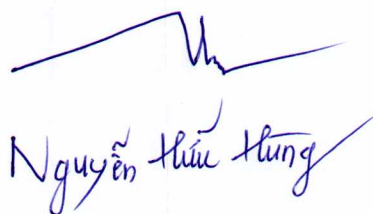 Nguyễn Hữu Hùng